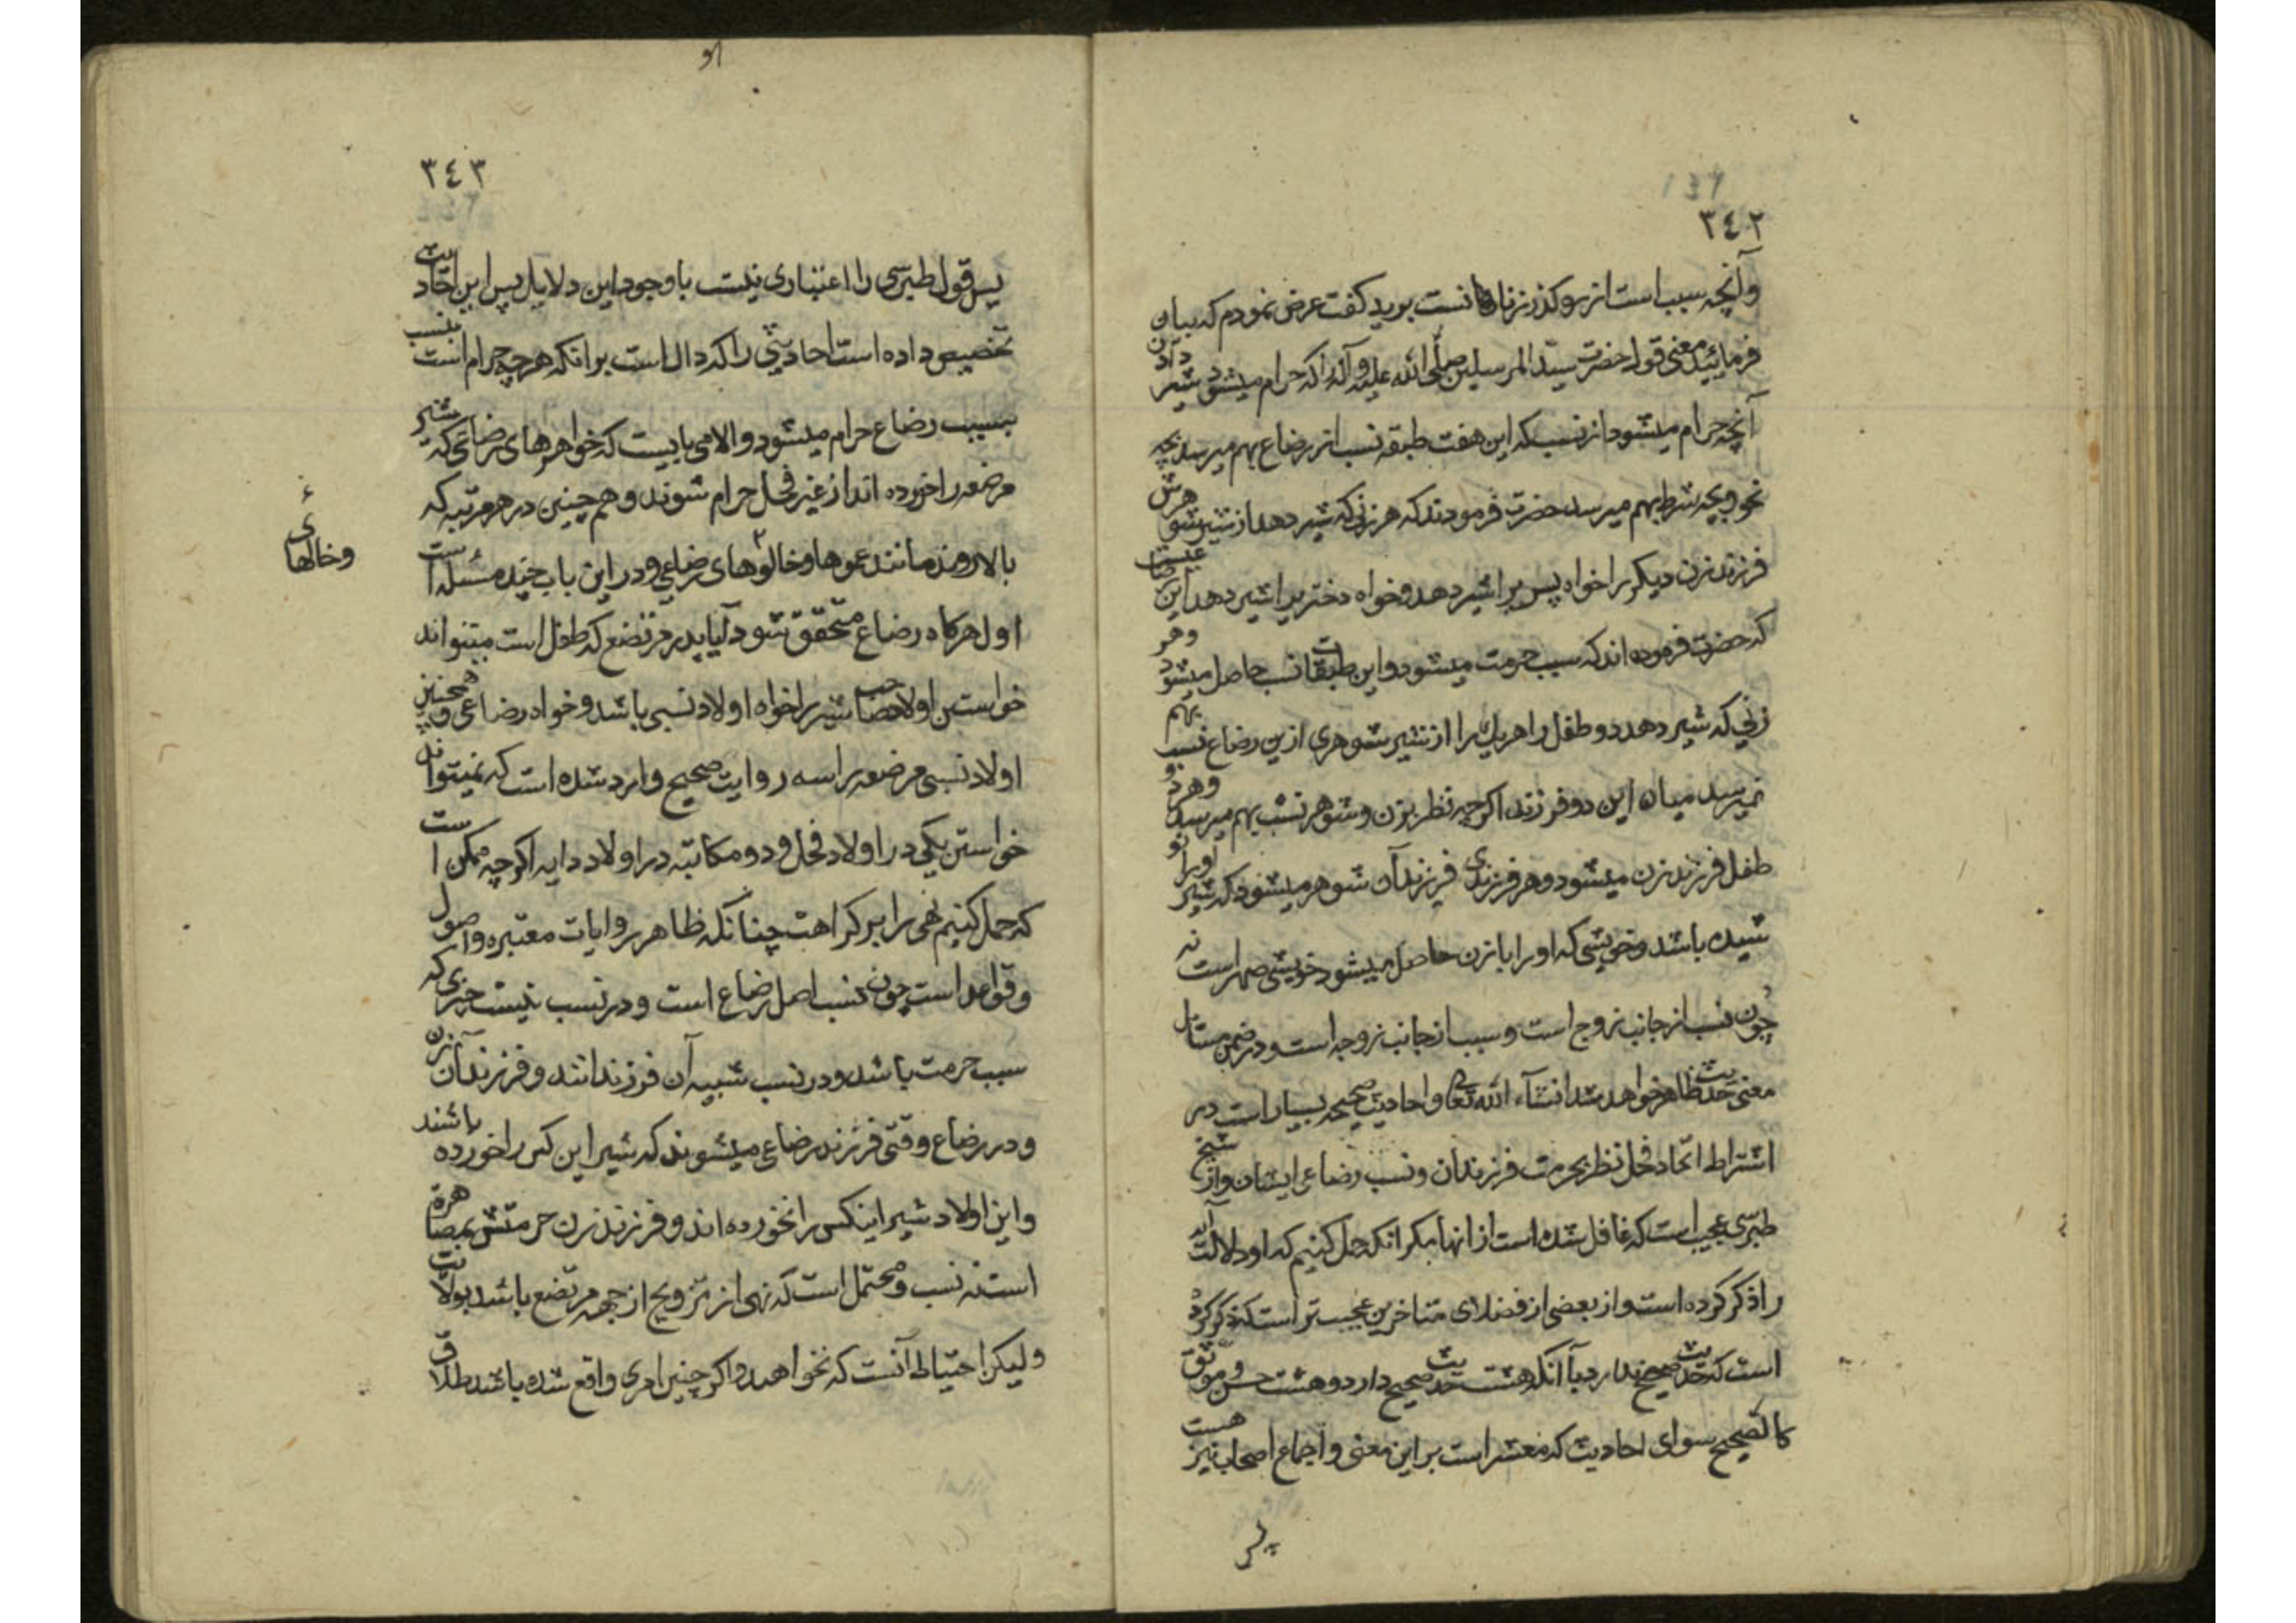 ٣٤٢
وآنچه سبب است از رو كذر زنان است بريد كفت عرض نمودم كه بيان
فرمائيد معنى قول حضرت سيد المرسلين صلى الله عليه وآله را كه حرام ميشود شير دادن
آنچه حرام ميشود از نسب كه اين هفت طبقه نسب از رضاع بهم ميرسد بچه
نحو وبچه شرط بهم ميرسد حضرت فرمودند كه هر زنى كه شير دهد از شير شوهرش
فرزند زن ديكر را خواه پسر را شير دهد وخواه دختر را شير دهد اين رضاعيست
كه حضرت فرموده اند كه سبب حرمت ميشود واين طبقات نسب حاصل ميشود وهر
زنى كه شير دهد دو طفل را هر يك را از شير شوهرى ازين رضاع نسب بهم
نميرسد ميان اين دو فرزند اكرچه نظر بزن وشوهر نسب بهم ميرسد وهر دو
طفل فرزند زن ميشود وهر فرزندى فرزند آن شوهر ميشود كه شير او را
شيده باشد وخويشى كه او را با زن حاصل ميشود خويشى صهر است نه
چون نسب از جانب زوج است وسبب از جانب زوجه است ودر ضمن مسائل
معنى حديث ظاهر خواهد شد انشاء الله تعالى واحاديث صحيحه بسيار است در
اشتراط اتحاد فحل نظر بحرمت فرزندان ونسب رضاعى ايشان واز شيخ
طبرسى عجيب است كه غافل شده است از انها مكر انكه حمل كنيم كه او دلالت
را ذكر كرده است واز بعضى از فضلاى متاخرين عجيب تر است كه ذكر كرده
است كه حديث صحيح ندارد با آنكه هشت حديث صحيح دارد وهشت حسن وموثق
كالصحيح سواى احاديث كه مشعر است بر اين معنى واجماع اصحاب نيز هست
پس
٣٤٣
پس قول طبرسى را اعتبارى نيست با وجود اين دلايل پس اين احاديث
تخصيص داده است احاديثى را كه دال است بر انكه هر چه حرام است بنسب
بسبب رضاع حرام ميشود والا مى بايست كه خواهرهاى رضاعى كه شير
مرضعه را خورده اند از غير فحل حرام شوند وهم چنين در هر مرتبه كه
بالا روند مانند عموها وخالوهاى رضاعى ودر اين باب چند مسئله است
وخالهاى
اول هركاه رضاع متحقق شود آيا پدر مرتضع كه طفل است ميتواند
خواستن اولاد صاحب شير را خواه اولاد نسبى باشد وخواه رضاعى وهمچنين
اولاد نسبى مرضعه را سه روايت صحيح وارد شده است كه نميتواند
خواستن يكى در اولاد فحل ودو مكاتبه در اولاد دايه اكرچه ممكن است
كه حمل كنيم نهى را بر كراهت چنانكه ظاهر روايات معتبره واصول
وقواعد است چون نسب اصل رضاع است ودر نسب نيست چيزى كه
سبب حرمت باشد ودر نسب شبيه آن فرزندانند وفرزندان آن زن
ودر رضاع وقتى فرزند رضاعى ميشوند كه شير اين كس را خورده باشند
واين اولاد شير اينكس را نخورده اند وفرزند زن حرمتش بمصاهرة
است نه نسب ومحتمل است كه نهى از تزويج از جهه مرتضع باشد بولايت
وليكن احتياط آنست كه نخواهد واكر چنين امرى واقع شده باشد طلاق